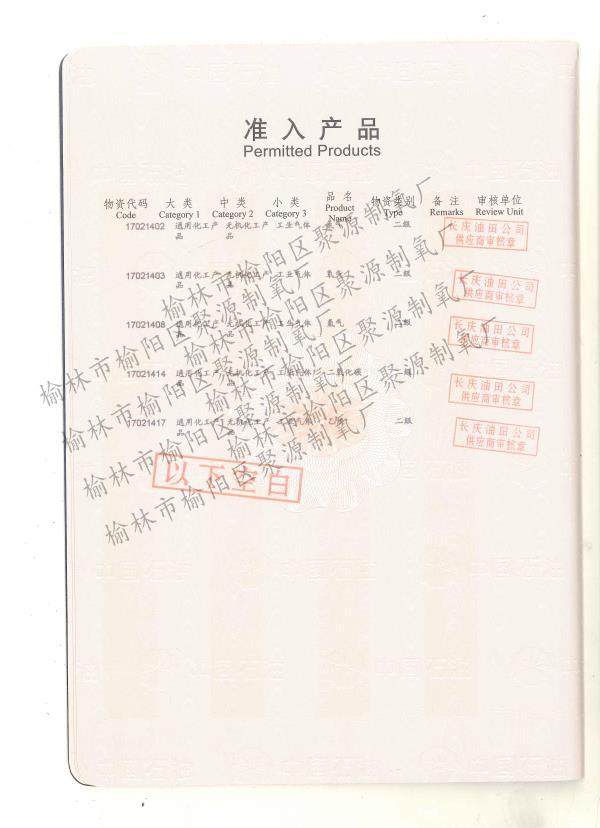 准入产品
Permitted Products
物资代码 大类 中类 小类 品名 物资类别 备注 审核单位
Code Category 1 Category 2 Category 3 Product Name Type Remarks Review Unit
17021402 通用化工产品 无机化工产品 工业气体 二级
长庆油田公司
供应商审核章
17021403 通用化工产品 无机化工产品 工业气体 二级
长庆油田公司
供应商审核章
17021408 通用化工产品 无机化工产品 工业气体 氩气 二级
长庆油田公司
供应商审核章
17021414 通用化工产品 无机化工产品 工业气体 二氧化碳 二级
长庆油田公司
供应商审核章
17021417 通用化工产品 无机化工产品 工业气体 乙炔 二级
长庆油田公司
供应商审核章
以下空白
榆林市榆阳区聚源制氧厂
榆林市榆阳区聚源制氧厂
榆林市榆阳区聚源制氧厂
榆林市榆阳区聚源制氧厂
榆林市榆阳区聚源制氧厂
榆林市榆阳区聚源制氧厂
榆林市榆阳区聚源制氧厂
榆林市榆阳区聚源制氧厂